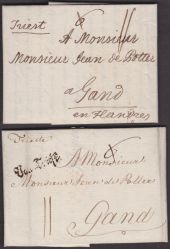 Triest
A Monsieur
Monsieur Jean de Potter
a Gand
en Flandres
Trieste
Von Triest
A Monsieur
Monsieur Jean de Potter
Gand